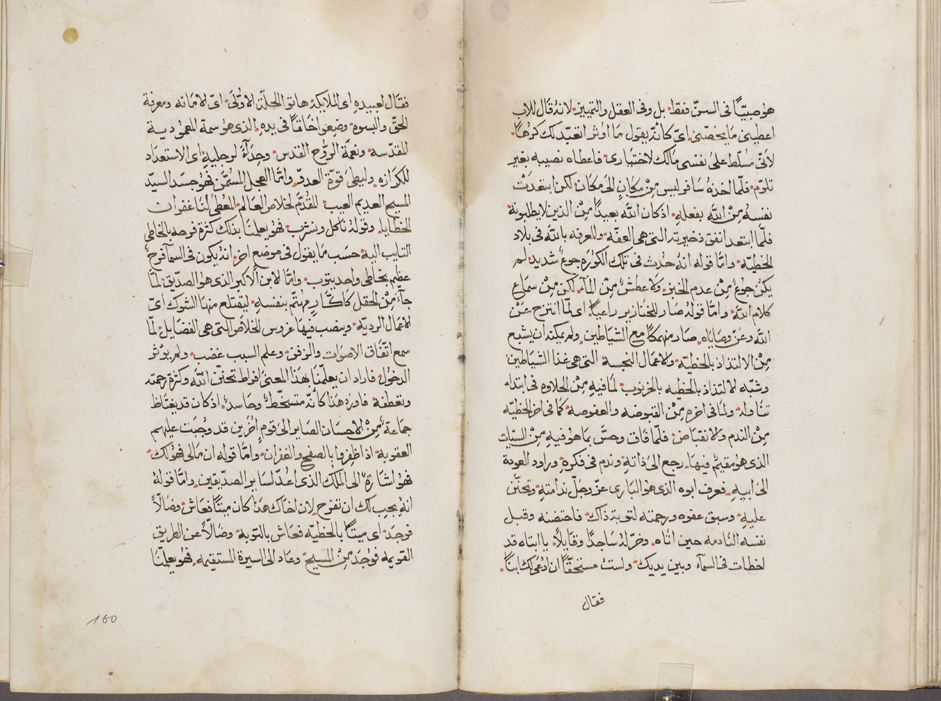 هو صبيّاً في السنّ فقط بل وفي العقل والتمييز لانه قال للاب
اعطيني ما يخصّني اي كانه يقول ما اوثر اتعبّد لك كرهاً
لانّي مسلّط على نفسي مالك لاختياري فاعطاه نصيبه بغير
تلوّم فلمّا اخذه سافر ليس من مكان الى مكان لكن ابتعدت
نفسه من الله بفعله اذ كان الله بعيداً من الذين لا يطلبونه
فلمّا ابتعد انفق ذخيرته التي هي العفّه والمعرفه بالله في بلاد
الخطيّه وامّا قوله انه حدث في تلك الكوره جوع شديد لم
يكن جوع من عدم الخبز ولا عطش من المآء لكن من سماع
كلام الله وامّا قوله صار للخنازير راعياً اي لمّا انتزح عن
الله وعن وصاياه صار منهمكاً مع الشياطين ولم يمكنه ان يشبع
من الالتذاذ بالخطيّه والاعمال النجسة التي هي غذا الشياطين
وشبّه الالتذاذ بالخطيه بالخرنوب لما فيه من الحلاوه في ابتداء
تناوله ولما في اخره من القبوضه والعفوصه كما في اخر الخطيّه
من الندم والانقباض فلمّا فاق وحسّ بما هو فيه من السيّات
الذي هو مقيم فيها رجع الى ذاته وندم في فكره وراود العودة
الى ابيه فعرف ابوه الذي هو الباري عزّ وجلّ ندامته وتحنّن
عليه وسبق عفوه ورحمته لتوبة ذاك فاحتضنه وقبل
نفسه النادمه حين اتاه وخرّ له ساجداً وقايلاً يا ابتاه قد
اخطات في السمآء وبين يديك ولست مستحقّاً ان ادعى لك ابناً
فقال
فقال لعبيده اي الملايكة هاتوا الحلّة الاوّلى اي الامانه ومعرفة
الحقّ والبسوه وضعوا خاتماً في يده الذي هو سمة المعموديّة
المقدّسه ونعمة الروح القدس وحذآءً لرجليه اي الاستعداد
للكرازه وليطي قوّة العدوّ وامّا العجل المسمّن فهو جسد السيّد
المسيح العديم العيب المقدّم لخلاص العالم المعطي لنا غفران
الخطايا وقوله ناكل ونشرب فهو يعلمنا بذلك كثرة فرحه بالخاطي
التايب اليه حسب ما يقول في موضع اخر انه يكون في السمآ فرح
عظيم بخاطي واحد يتوب وامّا الابن الاكبر الذي هو الصدّيق لمّا
جآء من الحقل كاكّار مهتمّ بنفسه ليقتلع منها الشوك اي
الاعمال الرديّه وينصب فيها غروس الخلاص التي هي الفضايل لمّا
سمع اتّفاق الاصوات والزفن وعلم السبب غضب ولم يوثر
الدخول فاراد ان يعلّمنا هذا المعنى افراط تحنّن الله وكثرة رحمته
وتعطفه فاورد هذا كانه متسخّط وحاسد اذ كان قد يغتاظ
جماعة من الاحسان الصاير الى قوم اخرين قد وجبت عليهم
العقوبة اذا ظفروا بالصفح والغفران وامّا قوله ان مالي هو لك
فهو اشارة الى الملك الذي اعدّ لساير الصديقين وامّا قوله
انه يجب لك ان تفرح لان اخاك هذا كان ميتاً فعاش وضالاً
فوجد اي ميتاً بالخطيّه فعاش بالتوبة وضالاً عن الطريق
القويمه فوجد من المسيح وعاد الى السيرة المستقيمه فهو يعلّمنا
160